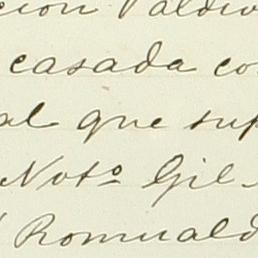 cion Valdiv
casada co
al que sup
Noto Gil
Romuald